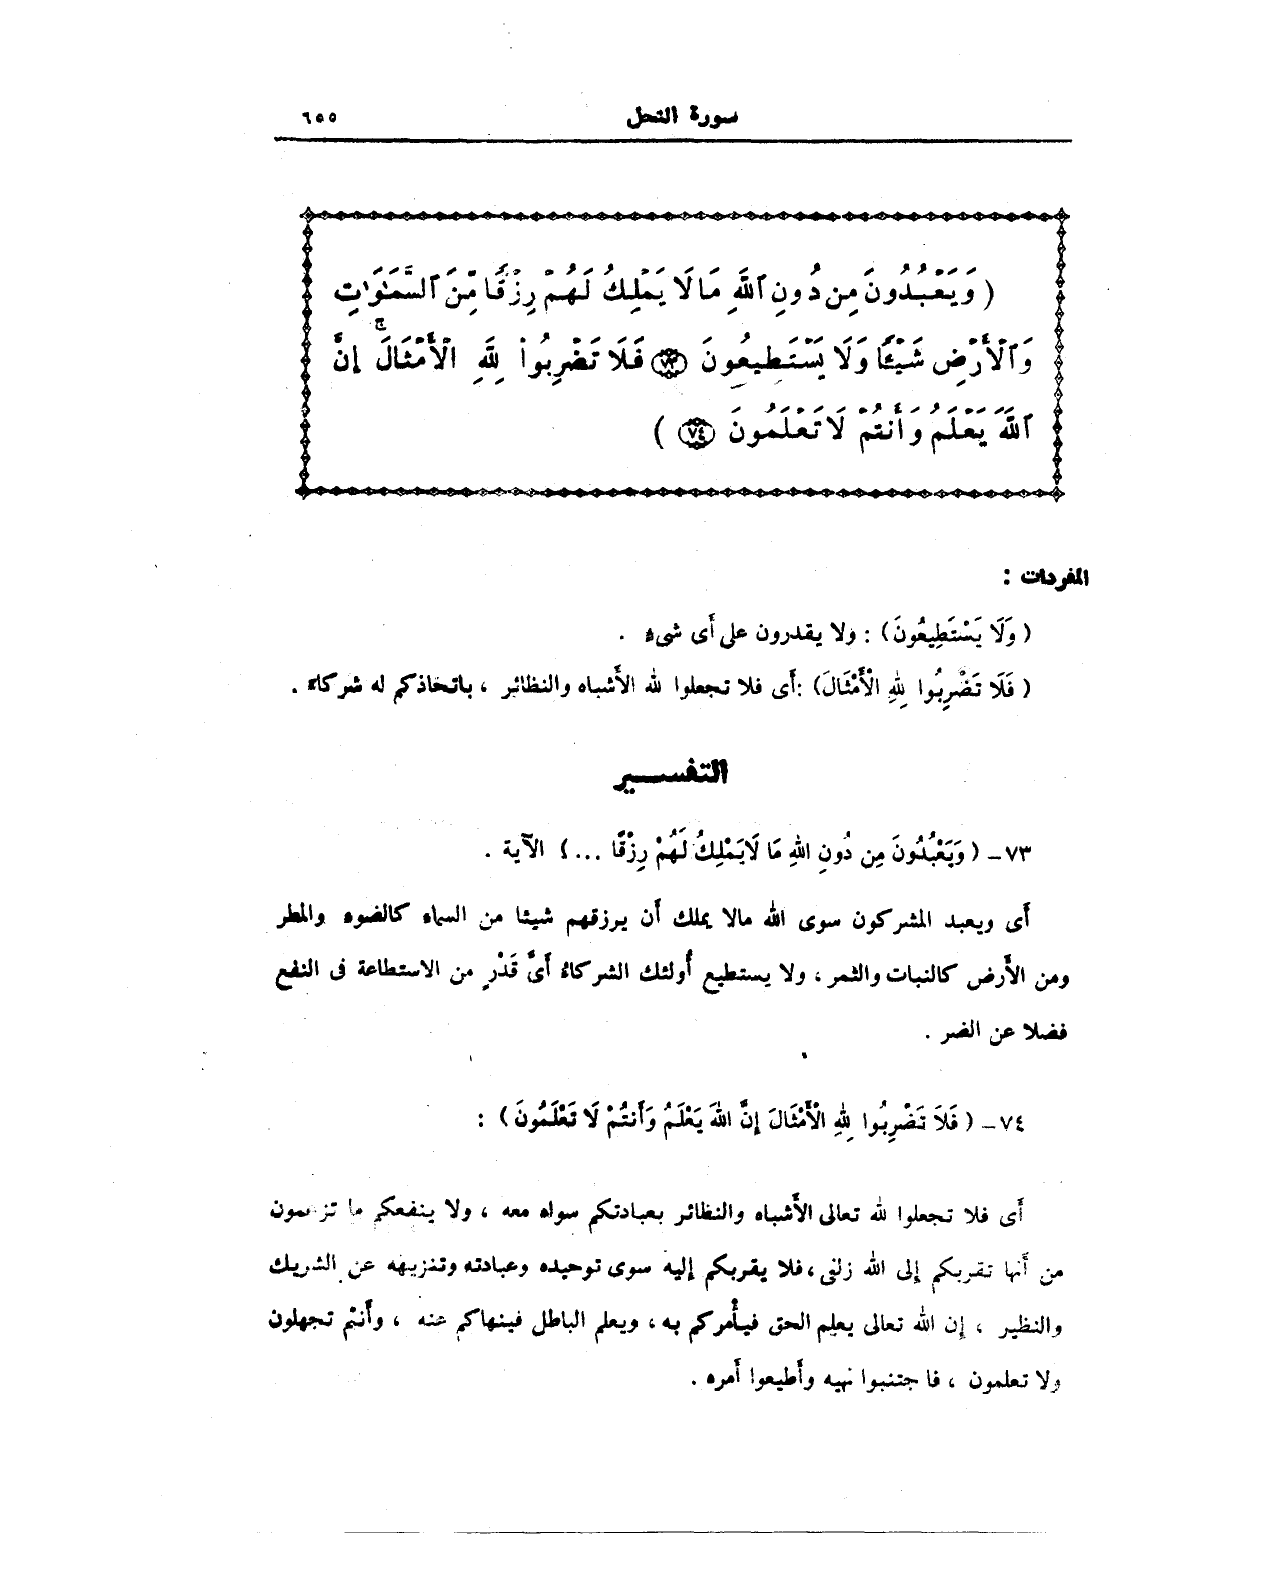 سورة النحل ٦٥٥
( وَيَعْبُدُونَ مِن دُونِ ٱللَّهِ مَا لَا يَمْلِكُ لَهُمْ رِزْقًا مِّنَ ٱلسَّمَٰوَٰتِ
وَٱلْأَرْضِ شَيْـًٔا وَلَا يَسْتَطِيعُونَ ٧٣ فَلَا تَضْرِبُوا۟ لِلَّهِ ٱلْأَمْثَالَ ۚ إِنَّ
ٱللَّهَ يَعْلَمُ وَأَنتُمْ لَا تَعْلَمُونَ ٧٤ )
المفردات :
( وَلَا يَسْتَطِيعُونَ ) : ولا يقدرون على أى شىء .
( فَلَا تَضْرِبُوا لِلهِ الْأَمْثَالَ ) : أى فلا تجعلوا لله الأشباه والنظائر ، باتخاذكم له شركاء .
التفسير
٧٣ – ( وَيَعْبُدُونَ مِن دُونِ اللهِ مَا لَايَمْلِكُ لَهُمْ رِزْقًا ... ) الآية .
أى ويعبد المشركون سوى الله مالا يملك أن يرزقهم شيئا من السماء كالضوء والمطر
ومن الأرض كالنبات والثمر ، ولا يستطيع أولئك الشركاءُ أىَّ قَدْرٍ من الاستطاعة فى النفع
فضلا عن الضر .
٧٤ – ( فَلَا تَضْرِبُوا لِلهِ الْأَمْثَالَ إِنَّ اللهَ يَعْلَمُ وَأَنتُمْ لَا تَعْلَمُونَ ) :
أى فلا تجعلوا لله تعالى الأشباه والنظائر بعبادتكم سواه معه ، ولا ينفعكم ما تزعمون
من أنها تقربكم إلى الله زلفى ، فلا يقربكم إليه سوى توحيده وعبادته وتنزيهه عن الشريك
والنظير ، إن الله تعالى يعلم الحق فيأمركم به ، ويعلم الباطل فينهاكم عنه ، وأنتم تجهلون
ولا تعلمون ، فاجتنبوا نهيه وأطيعوا أمره .